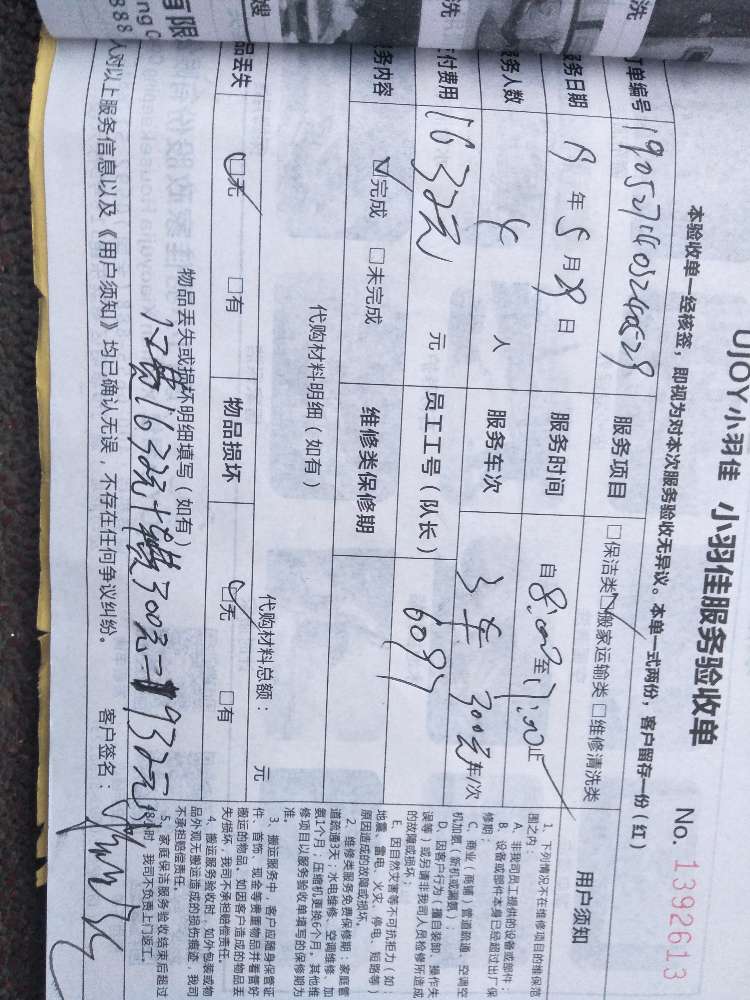 UJOY小羽佳 小羽佳服务验收单 No. 1392613
本验收单一经核签，即视为对本次服务验收无异议。本单一式两份，客户留存一份(红)
订单编号
服务项目 □保洁类 ☑搬家运输类 □维修清洗类
服务日期 19年5月29日 服务时间 自8:00至17:00止
服务人数 人 服务车次 3车 300元 车/次
付费用 1632元 元 员工工号(队长) 6097
服务内容 ☑完成 □未完成 维修类保修期
代购材料明细(如有)
代购材料总额： 元
品丢失 ☑无 □有 物品损坏 ☑无 □有
物品丢失或损坏明细填写(如有)
人对以上服务信息以及《用户须知》均已确认无误，不存在任何争议纠纷。 客户签名：
用户须知
1、下列情况不在维修项目的维保范
围之内：
A、非我司员工提供的设备或部件；
B、设备或部件本身已经超过出厂保
修期；
C、商业(商铺)管道疏通、空调空
机加氨(新机或漏氨)；
D、因客户行为(擅自装卸、操作失
误等)或已请非我司人员检修所造成
的故障或损坏；
E、因自然灾害等不可抗拒力(如：
地震、雷电、火灾、停电、短路等)
原因造成的故障或损坏。
2、维修类服务免费保修期：家庭管
道疏通3天；水电维修、空调维修、加
氨1个月；压缩机更换6个月。其他维
修项目以服务验收单填写的保修期为
准。
3、搬运服务中，客户应随身保管证
件、首饰、现金等贵重物品并看管好
搬运的物品。如因客户造成的物品丢
失/损坏，我司不承担赔偿责任。
4、搬运服务验收时，如外包装或物
品外观无搬运造成的损伤痕迹，我司
不承担赔偿责任。
5、家庭保洁服务验收结束后超过
48小时，我司不负责上门返工。